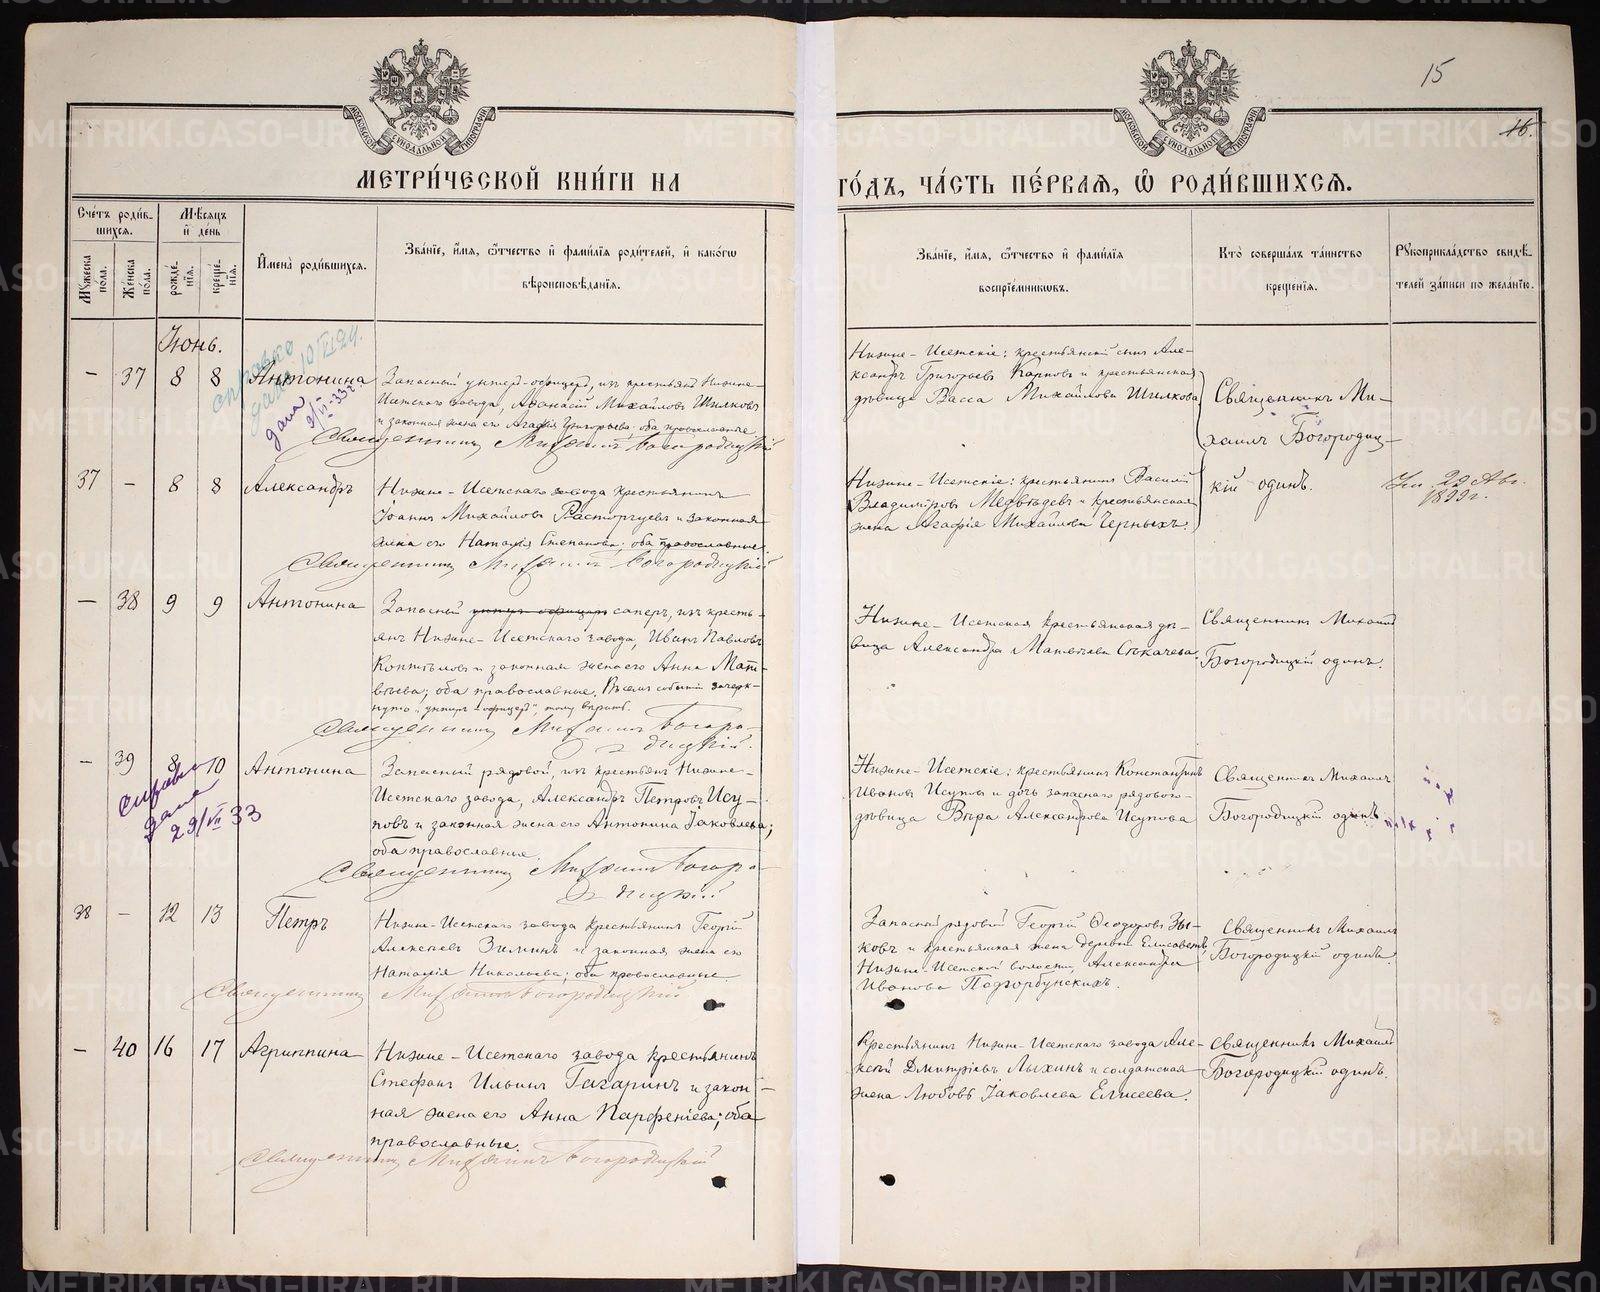 15
16.
МОСКОВСКОЙ СѴНОДАЛЬНОЙ ТИПОГРАФІИ
МОСКОВСКОЙ СѴНОДАЛЬНОЙ ТИПОГРАФІИ
МЕТРИ́ЧЕСКОЙ КНИ́ГИ НА
ГО́ДЪ, ЧА́СТЬ ПЕ́РВАЯ, Ѡ РОДИ́ВШИХСЯ.
Сче́тъ роди́в-
шихся.
Мѣсяцъ
и де́нь
Мꙋ́жеска
пола.
Же́нска
пола.
рожде́-
нїя.
креще́-
нїя.
И҆мена̀ роди́вшихся.
Зва́нїе, и҆́мя, ѻ҆́тчество и҆ фами́лїя роди́телей, и҆ како́гѡ
вѣроисповѣ́данїя.
Зва́нїе, и҆́мя, ѻ҆́тчество и҆ фами́лїя
воспрїе́мникѡвъ.
Кто̀ соверша́лъ та́инство
креще́нїя.
Рꙋкоприкла́дство свидѣ́-
телей за́писи по жела́нїю.
Іюнь.
справка
дана 10/VI 24.
дана
9/VI-33
- 37 8 8 Антонина
Запасный унтеръ-офицеръ, изъ крестьянъ Нижне-
Исетскаго завода, Афанасій Михайловъ Шилковъ
и законная жена его Агафія Григорьева; оба православные
Священникъ Михаилъ Богородицкій
Нижне-Исетскіе: крестьянскій сынъ Але-
ксандръ Григорьевъ Карповъ и крестьянская
дѣвица Васса Михайлова Шилкова
Священникъ Ми-
хаилъ Богородиц-
кій одинъ.
37 - 8 8 Александръ
Нижне-Исетскаго завода крестьянинъ
Іоаннъ Михайловъ Расторгуевъ и законная
жена его Наталія Степанова; оба православные.
Священникъ Михаилъ Богородицкій
Нижне-Исетскіе: крестьянинъ Василій
Владиміровъ Медвѣдевъ и крестьянская
жена Агафія Михайлова Черныхъ.
22 Авг.
1899г.
- 38 9 9 Антонина
Запасный унтеръ-офицеръ саперъ, изъ кресть-
янъ Нижне-Исетскаго завода, Иванъ Павловъ
Коптѣловъ и законная жена его Анна Мат-
вѣева; оба православные. Въ семъ событіи зачерк-
нуто "унтеръ-офицеръ", тому вѣрить.
Священникъ Михаилъ Богоро-
дицкій.
Нижне-Исетская крестьянская дѣ-
вица Александра Матвѣева Стихачева.
Священникъ Михаилъ
Богородицкій одинъ.
- 39 8 10 Антонина
справка
дана
29/VII 33
Запасный рядовой, изъ крестьянъ Нижне-
Исетскаго завода, Александръ Петровъ Ису-
повъ и законная жена его Антонина Іаковлева;
оба православные.
Священникъ Михаилъ Богоро-
дицкій
Нижне-Исетскіе: крестьянинъ Константинъ
Ивановъ Исуповъ и дочь запаснаго рядового-
дѣвица Вѣра Александрова Исупова
Священникъ Михаилъ
Богородицкій одинъ
38 - 12 13 Петръ
Нижне-Исетскаго завода крестьянинъ Георгій
Алексѣевъ Зиминъ и законная жена его
Наталія Николаева; оба православные
Священникъ Михаилъ Богородицкій
Запасной рядовой Георгій Ѳеодоровъ Зы-
ковъ и крестьянская жена деревни Елисаветъ
Нижне-Исетской волости, Александра
Иванова Подгорбунскихъ.
Священникъ Михаилъ
Богородицкій одинъ.
- 40 16 17 Агриппина
Нижне-Исетскаго завода крестьянинъ
Стефанъ Ильинъ Гагаринъ и закон-
ная жена его Анна Парфеніева; оба
православные.
Священникъ Михаилъ Богородицкій
Крестьянинъ Нижне-Исетскаго завода Але-
ксѣй Дмитріевъ Лыхинъ и солдатская
жена Любовь Іаковлева Елисеева.
Священникъ Михаилъ
Богородицкій одинъ.
METRIKI.GASO-URAL.RU